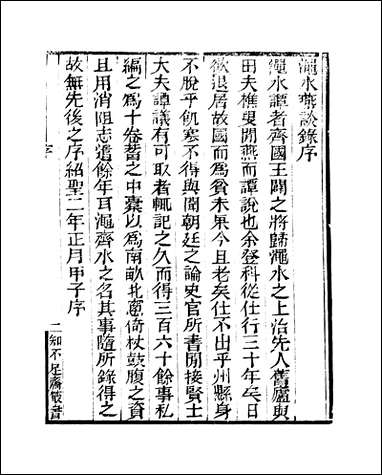 澠水燕談錄序
澠水譚者齊國王闢之將歸澠水之上治先人舊廬與
田夫樵叟閒燕而譚說也余登科從仕行三十年矣日
欲退居故國而爲貧未果今且老矣仕不出乎州縣身
不脫乎飢寒不得與聞朝廷之論史官所書閒接賢士
大夫譚議有可取者輒記之久而得三百六十餘事私
編之爲十卷蓄之中櫜以爲南畝北窻倚杖鼓腹之資
且用消阻志遣餘年耳澠齊水之名其事隨所錄得之
故無先後之序紹聖二年正月甲子序
序
一知不足齋叢書